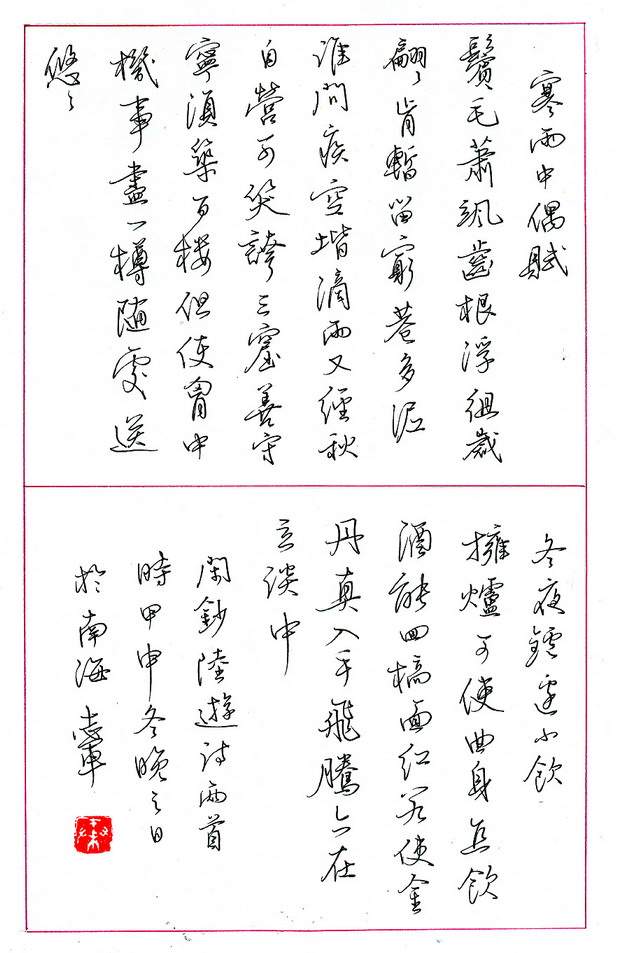 寒雨中偶賦
鬢毛蕭颯齒根浮徂歲
翩〻肯暫留窮巷多泥
誰問疾空堦滴雨又經秋
自營可笑誇三窟善守
寧須築百樓但使胷中
機事盡一樽隨處送
悠〻
冬夜鑪邊小飲
擁爐可使曲身直飲
酒能回槁面紅若使金
丹真入手飛騰亦在
立談中
閑鈔陸遊詩兩首
時甲申冬晚之日
於南海